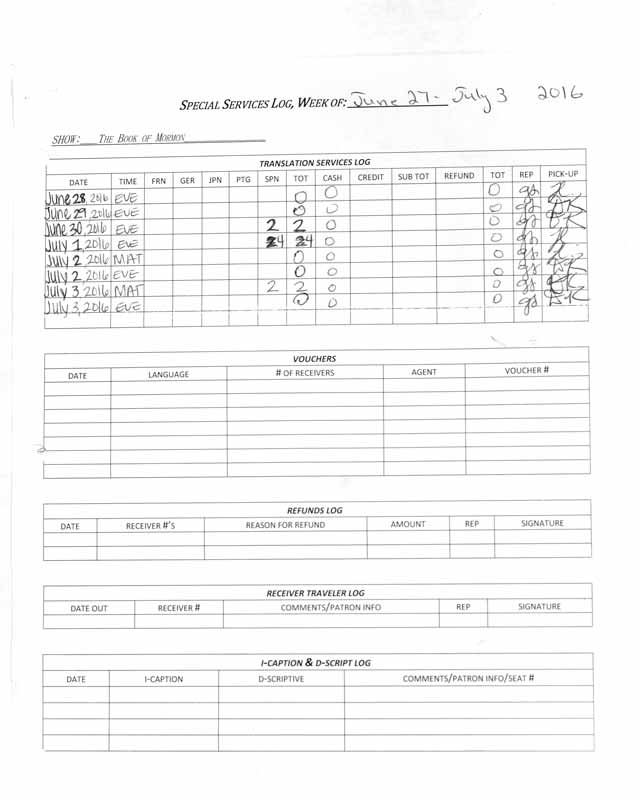 SPECIAL SERVICES LOG, WEEK OF: June 27 - July 3 2016
SHOW: THE BOOK OF MORMON
TRANSLATION SERVICES LOG
DATE TIME FRN GER JPN PTG SPN TOT CASH CREDIT SUB TOT REFUND TOT REP PICK-UP
June 28, 2016 EVE 0 0 0 gs
June 29, 2016 EVE 0 0 0 gs DK
June 30, 2016 EVE 2 2 0 0 gs DK
July 1, 2016 EVE 4 4 0 0 gs
July 2, 2016 MAT 0 0 0 gs
July 2, 2016 EVE 0 0 0 gs DK
July 3, 2016 MAT 2 2 0 0 gs DK
July 3, 2016 EVE 0 0 0 gs DK
VOUCHERS
DATE LANGUAGE # OF RECEIVERS AGENT VOUCHER #
REFUNDS LOG
DATE RECEIVER #'S REASON FOR REFUND AMOUNT REP SIGNATURE
RECEIVER TRAVELER LOG
DATE OUT RECEIVER # COMMENTS/PATRON INFO REP SIGNATURE
I-CAPTION & D-SCRIPT LOG
DATE I-CAPTION D-SCRIPTIVE COMMENTS/PATRON INFO/SEAT #